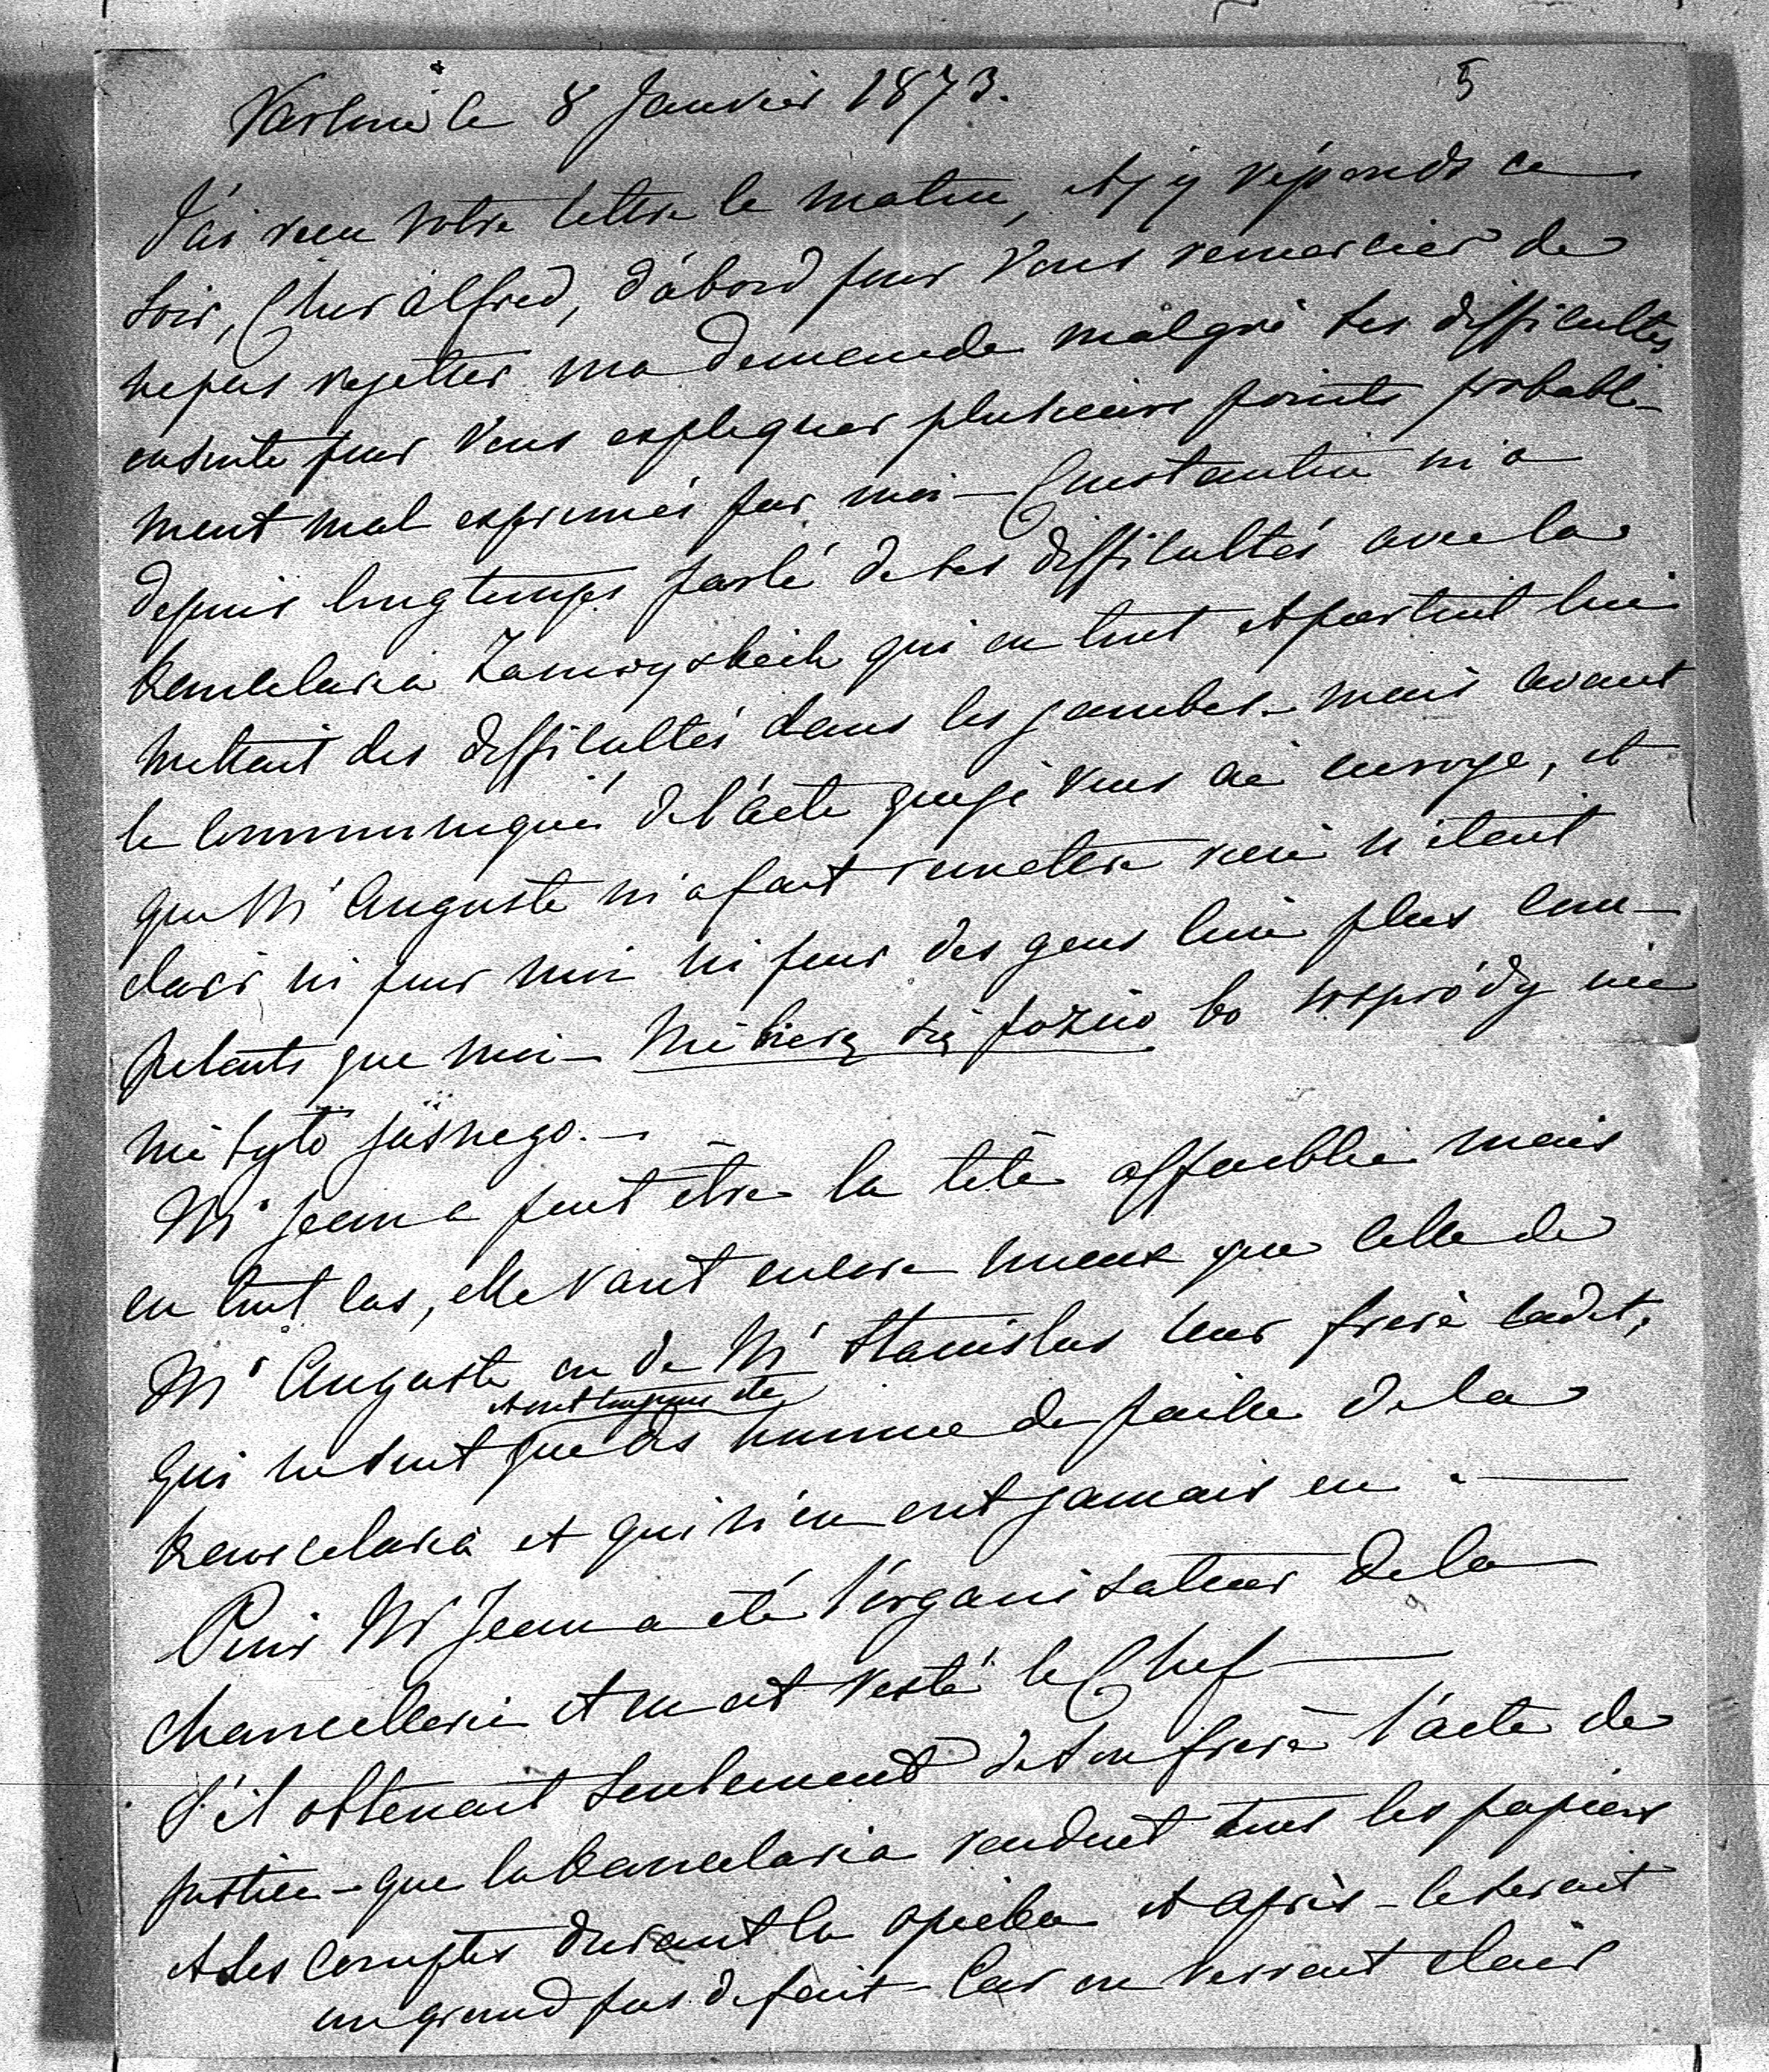 le 8 Janvier 1873. 5
J'ai recu votre lettre le matin, et j'y réponds ce
soir, Cher Alfred, d'abord pour Vous remercier de
ne pas rejetter ma demande malgré les difficultés
ensuite pour Vous expliquer plusieurs points probable-
ment mal exprimés par moi — Constantin m'a
depuis longtemps parlé de ses difficultés avec la
Kancelaria Zamoyskich qui en tout et partout lui
mettait des difficultés dans les jambes – mais avant
le communiqué de l'acte que je Vous ai envoyé, et
que Mr Auguste m'a fait remettre rien n'était
clair ni pour moi ni pour des gens bien plus com-
petents que moi – nie bierz się pozno bo wprzódy nic
nie było jasnego. –
Mr Jean a peut être la tête affaiblie mais
en tout cas, elle vaut encore mieux que celle de
Mr Auguste ou de Mr Stanislas leur frère cadet,
et ont toujours été
qui ne sont que des homme de paille de la
Kancelaria et qui n'en ont jamais eu . —
Puis Mr Jean a été l'organisateur de la
chancellerie et en est resté le Chef —
S'il obtenait seulement de son frère l'acte de
justice – que la Kancelaria rendit tous les papiers
et les comptes durant la opieka et après – ce serait
un grand pas de fait – Car on verrait clair